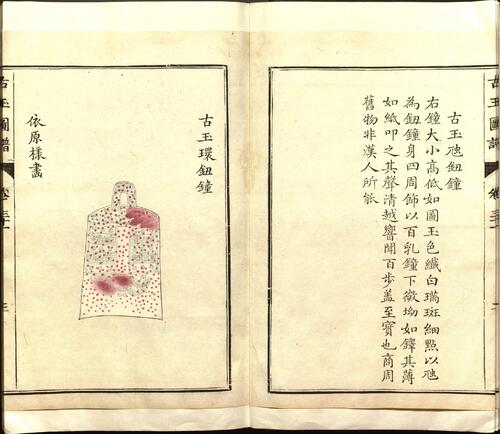 古玉圖譜
古玉虺鈕鐘
右鐘大小高低如圖玉色纖白璊斑細點以虺
為鈕鐘身四周飾以百乳鐘下微坳如鐸其薄
如紙叩之其聲清越響聞百步盖至寶也商周
舊物非漢人所能
古玉環鈕鐘
依原樣畫
古玉圖譜